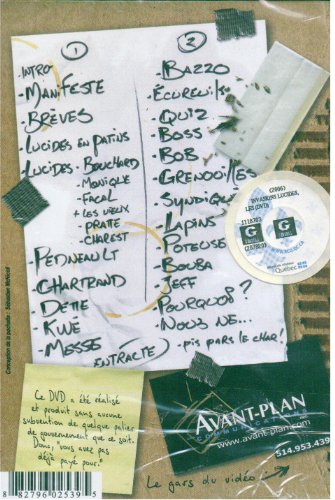 1
INTRO
MANIFESTE
BRÈVES
LUCIDES EN PATINS
LUCIDES: BOUCHARD
MONIQUE
FACAL
+ LES VIEUX
PRATTE
CHAREST
PEDNEAULT
CHARTRAND
DETTE
KWE
MESSE
ENTRACTE)
2
BAZZO
ÉCUREUILS
QUIZ
BOSS
BOB
GRENOUILLES
SYNDIQUÉ
LAPINS
POTEUSE
BOUBA
JEFF
POURQUOI?
NOUS NE...
- PIS PARS LE CHAR!
(2006)
INVASIONS LUCIDES,
LES (DVD)
G
G
Québec
Conception de la pochette : Sébastien McNicoll
Ce DVD a été réalisé
et produit sans aucune
subvention de quelque palier
de gouvernement que ce soit.
Donc, "vous avez pas
déjà payé pour."
AVANT-PLAN
COMMUNICATIONS
www.avant-plan.com
514.953.439
Le gars du vidéo
8 82796 02539 5